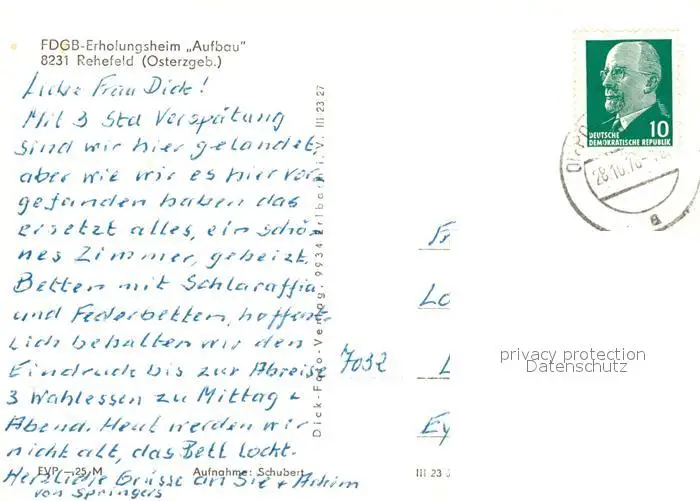 FDGB-Erholungsheim „Aufbau"
8231 Rehefeld (Osterzgeb.)
Liebe Frau Dick!
Mit 3 Std Verspätung
sind wir hier gelandet,
aber wie wir es hier vor-
gefunden haben das
ersetzt alles, ein schö-
nes Zimmer, geheizt.
Betten mit Schlaraffia
und Federbetten, hoffent-
lich behalten wir den
Eindruck bis zur Abreise
3 Wahlessen zu Mittag +
Abend. Heut werden wir
nicht alt, das Bett lockt.
Herzliche Grüsse an Sie + Achim
von Springers
EVP –,25 M
Aufnahme: Schubert
Dick-Foto-Verlag, 9934 Erlbach i. V. III 23 27
10
DEUTSCHE
DEMOKRATISCHE REPUBLIK
28.10.70
a
Fr
Lo
7032 L
Ey
III 23
privacy protection
Datenschutz